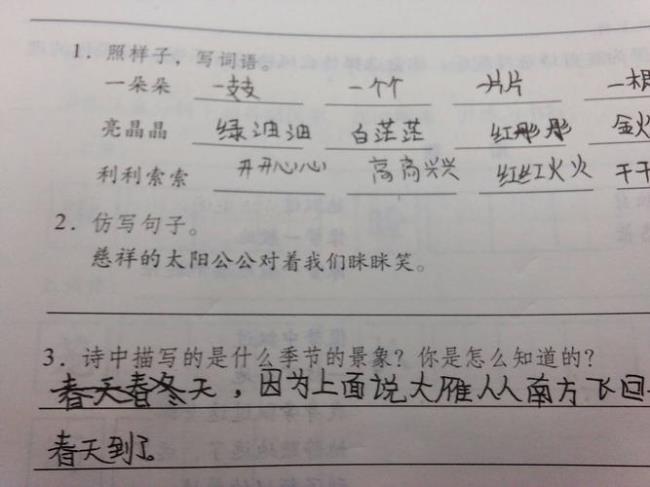 1. 照样子，写词语。
一朵朵 一个个 一片片 一
亮晶晶 绿油油 白茫茫 红彤彤 金
利利索索 开开心心 高高兴兴 红红火火 干干
2. 仿写句子。
慈祥的太阳公公对着我们眯眯笑。
3. 诗中描写的是什么季节的景象？你是怎么知道的？
春天春冬天，因为上面说大雁人人南方飞回
春天到了。